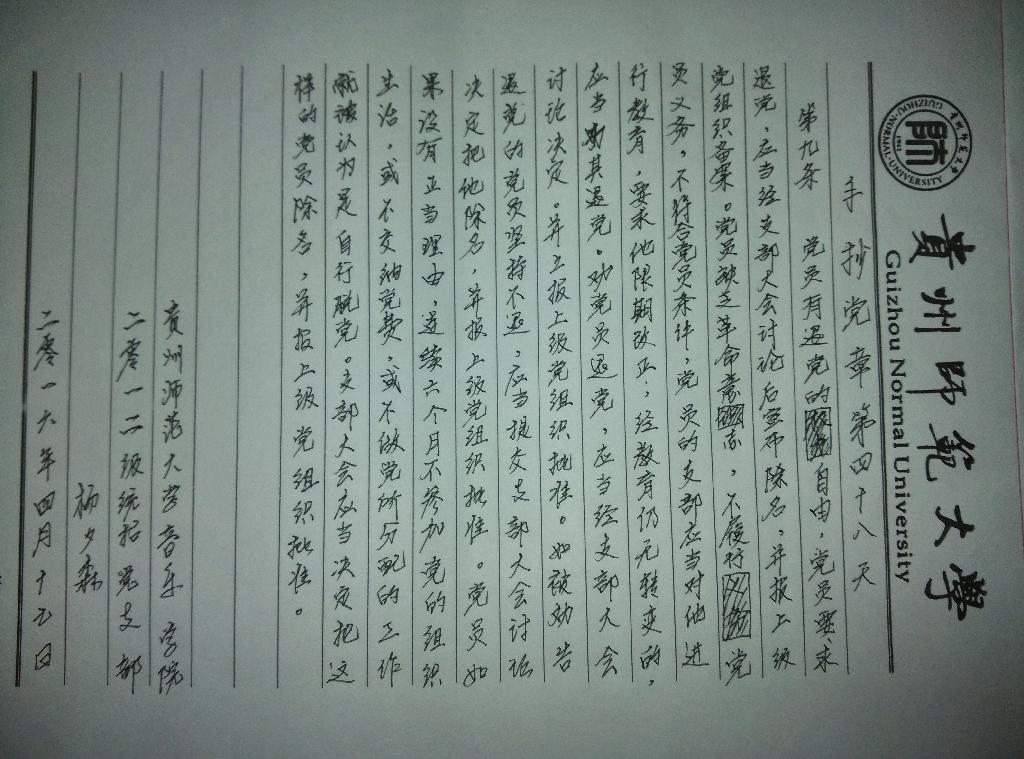 GUIZHOU·NORMAL·UNIVERSITY
師
1941
貴州師範大學
Guizhou Normal University
手抄党章第四十八天
第九条 党员有退党的自由,党员要求
退党,应当经支部大会讨论后宣布除名,并报上级
党组织备案。党员缺乏革命意 ,不履行 党
员义务,不符合党员条件,党员的支部应当对他进
行教育,要求他限期改正;经教育仍无转变的,
应当劝其退党。劝党员退党,应当经支部大会
讨论决定。并上报上级党组织批准。如被劝告
退党的党员坚持不退,应当提交支部大会讨论
决定把他除名,并报上级党组织批准。党员如
果没有正当理由,连续六个月不参加党的组织
生活,或不交纳党费,或不做党所分配的工作
就被认为是自行脱党。支部大会应当决定把这
样的党员除名,并报上级党组织批准。
贵州师范大学音乐学院
二零一二级统招党支部
杨夕霖
二零一六年四月十七日